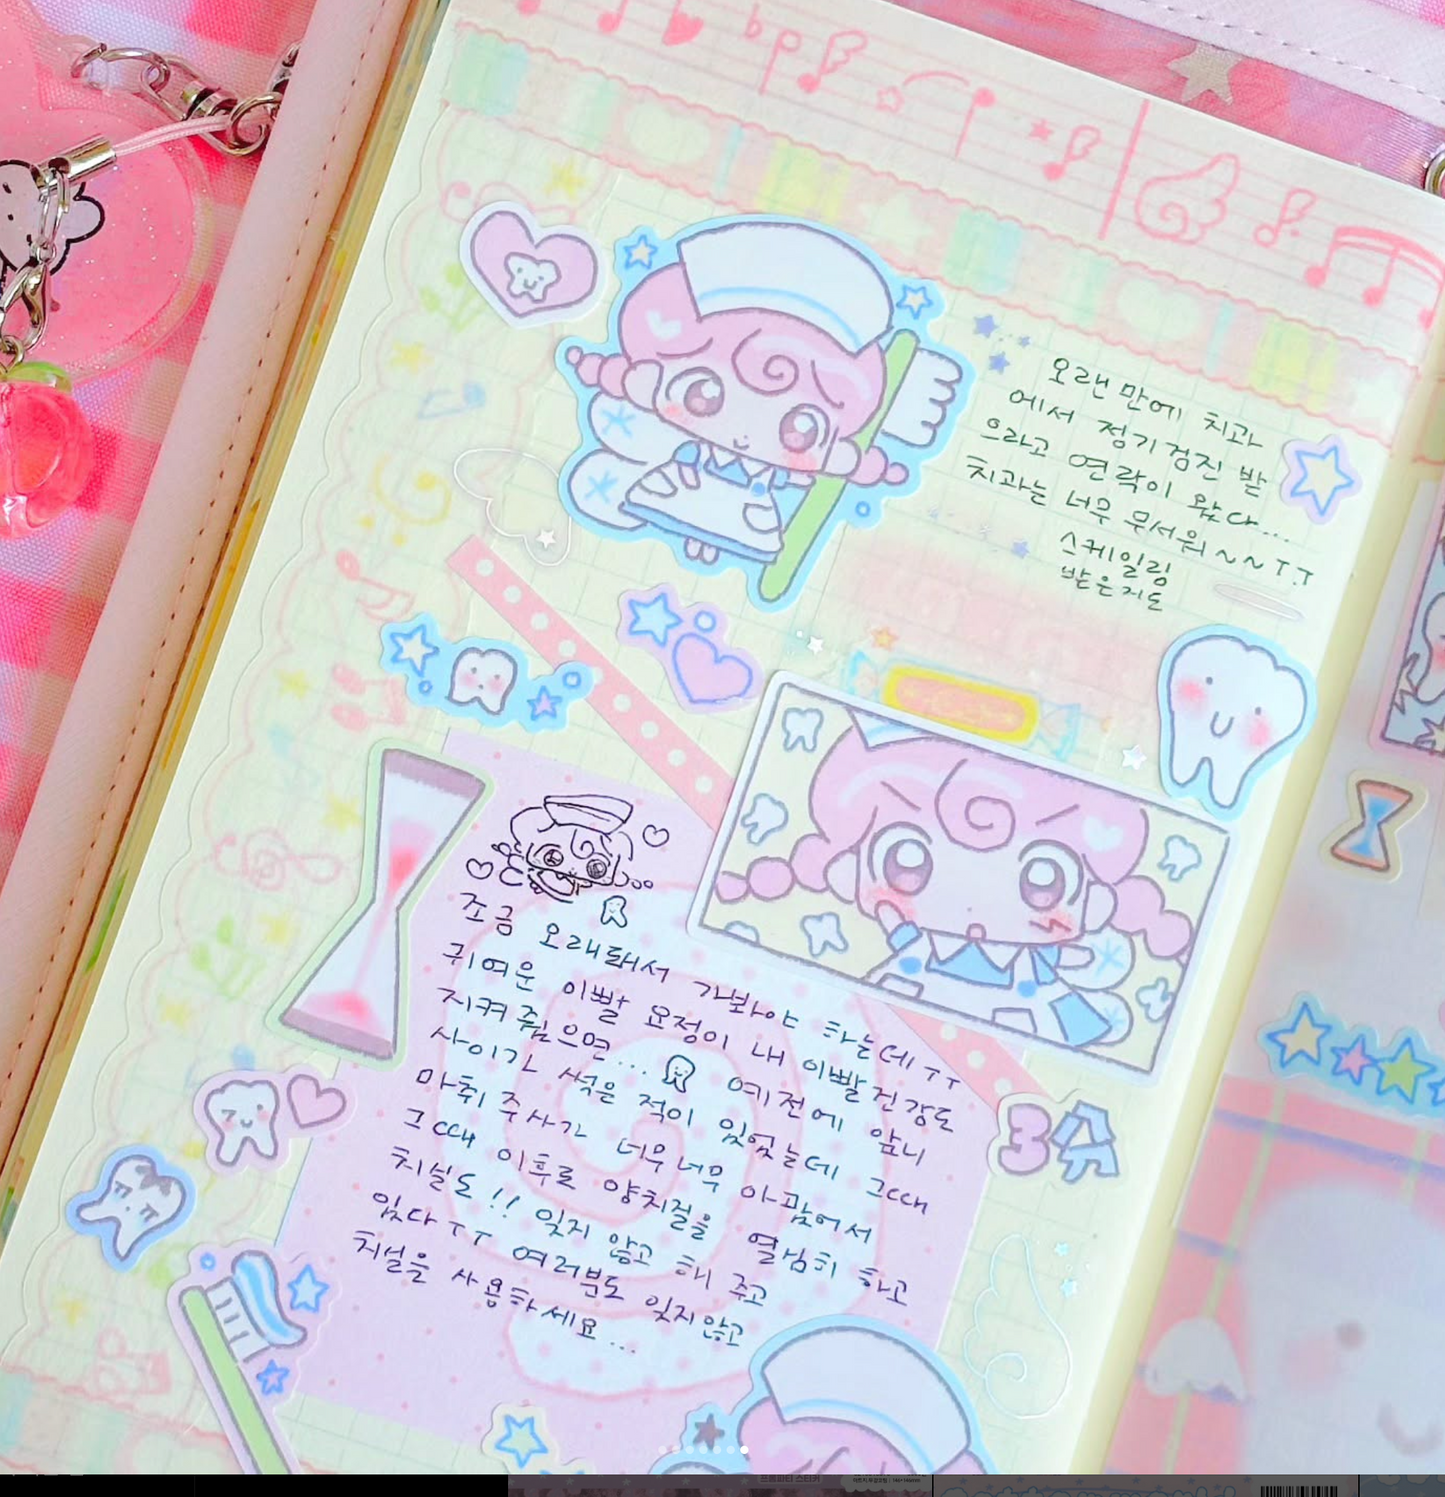 오랜만에 치과
에서 정기검진 받
으라고 연락이 왔다...
치과는 너무 무서워~~ㅜ.ㅜ
스케일링
받은지도
3분
조금 오래돼서 가봐야 하는데ㅜㅜ
귀여운 이빨 요정이 내 이빨건강도
지켜줬으면... 예전에 앞니
사이가 썩은 적이 있었는데 그때
마취 주사가 너무너무 아팠어서
그때 이후로 양치질을 열심히 하고
치실도!! 잊지 않고 해 주고
있다ㅜㅜ 여러분도 잊지않고
치실을 사용하세요...